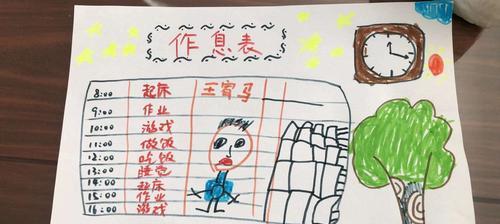 作息表
8:00 起床 王宥马
9:00 作业
10:00 游戏
11:00 做饭
12:00 吃饭
13:00 睡觉
14:00 起床
15:00 作业
16:00 游戏